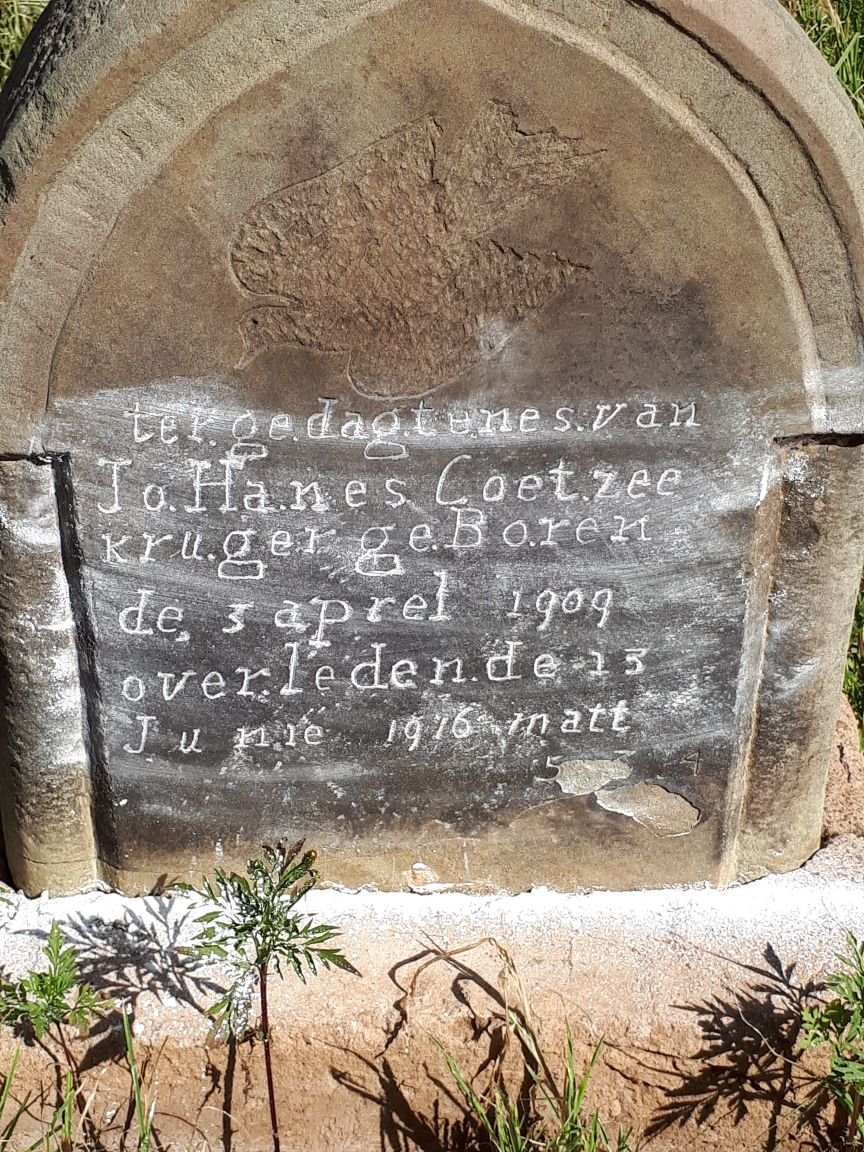 ter.ge.dagt.e.nes.van
Jo.Ha.nes Coet.zee
kru.ger ge.Bo.ren
de, 3 aprel 1909
over.leden.de 13
Junie 1916 matt
5 4